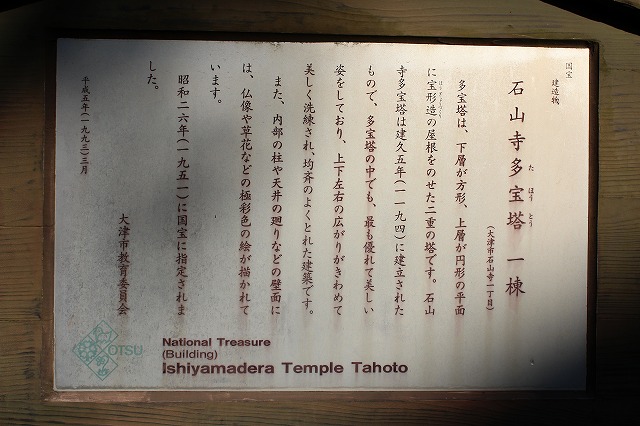 国宝
建造物
石山寺多宝塔 一棟
た ほう とう
(大津市石山寺一丁目)
多宝塔は、下層が方形、上層が円形の平面
に宝形造の屋根をのせた二重の塔です。石山
寺多宝塔は建久五年(一一九四)に建立された
もので、多宝塔の中でも、最も優れて美しい
姿をしており、上下左右の広がりがきわめて
美しく洗練され、均斉のよくとれた建築です。
また、内部の柱や天井の廻りなどの壁面に
は、仏像や草花などの極彩色の絵が描かれて
います。
昭和二六年(一九五一)に国宝に指定されま
した。
平成五年(一九九三)三月
大津市教育委員会
OTSU
National Treasure
(Building)
Ishiyamadera Temple Tahoto